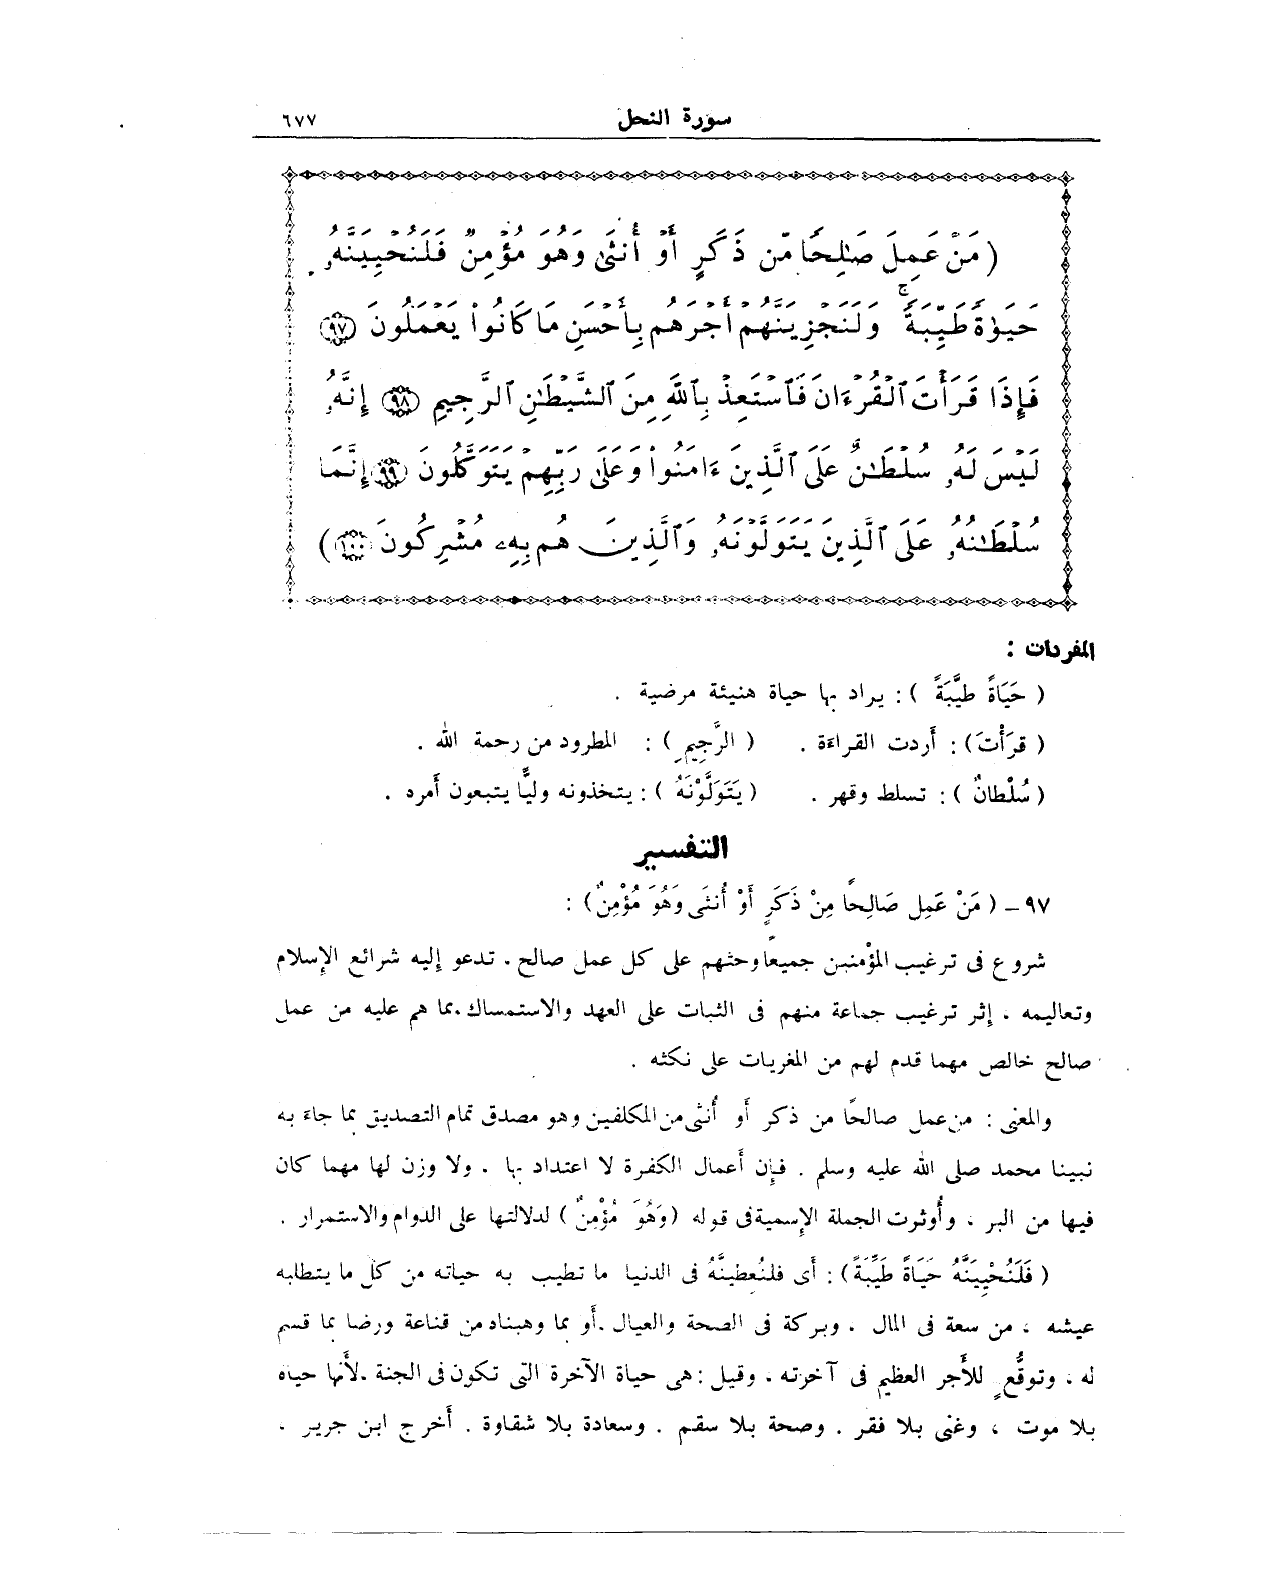 سورة النحل ٦٧٧
( مَنْ عَمِلَ صَٰلِحًا مِّن ذَكَرٍ أَوْ أُنثَىٰ وَهُوَ مُؤْمِنٌ فَلَنُحْيِيَنَّهُۥ
حَيَوٰةً طَيِّبَةً ۖ وَلَنَجْزِيَنَّهُمْ أَجْرَهُم بِأَحْسَنِ مَا كَانُوا۟ يَعْمَلُونَ ﴿٩٧﴾
فَإِذَا قَرَأْتَ ٱلْقُرْءَانَ فَٱسْتَعِذْ بِٱللَّهِ مِنَ ٱلشَّيْطَٰنِ ٱلرَّجِيمِ ﴿٩٨﴾ إِنَّهُۥ
لَيْسَ لَهُۥ سُلْطَٰنٌ عَلَى ٱلَّذِينَ ءَامَنُوا۟ وَعَلَىٰ رَبِّهِمْ يَتَوَكَّلُونَ ﴿٩٩﴾ إِنَّمَا
سُلْطَٰنُهُۥ عَلَى ٱلَّذِينَ يَتَوَلَّوْنَهُۥ وَٱلَّذِينَ هُم بِهِۦ مُشْرِكُونَ ﴿١٠٠﴾ )
المفردات :
( حَيَاةً طَيِّبَةً ) : يراد بها حياة هنيئة مرضية .
( قَرَأْتَ ) : أردت القراءة . ( الرَّجِيمِ ) : المطرود من رحمة الله .
( سُلْطانٌ ) : تسلط وقهر . ( يَتَوَلَّوْنَهُ ) : يتخذونه وليًّا يتبعون أمره .
التفسير
٩٧ - ( مَنْ عَمِل صَالِحًا مِنْ ذَكَرٍ أَوْ أُنثَى وَهُوَ مُؤْمِنٌ ) :
شروع فى ترغيب المؤْمنين جميعًا وحثهم على كل عمل صالح . تدعو إليه شرائع الإسلام
وتعاليمه ، إثر ترغيب جماعة منهم فى الثبات على العهد والاستمساك . بما هم عليه من عمل
صالح خالص مهما قدم لهم من المغريات على نكثه .
والمعنى : من عمل صالحًا من ذكر أو أُنثى من المكلفين وهو مصدق تمام التصديق بما جاءَ به
نبينا محمد صلى الله عليه وسلم . فإن أعمال الكفرة لا اعتداد بها . ولا وزن لها مهما كان
فيها من البر ، وأُوثرت الجملة الإسمية فى قوله ( وَهُوَ مُؤْمِنٌ ) لدلالتها على الدوام والاستمرار .
( فَلَنُحْيِيَنَّهُ حَيَاةً طَيِّبَةً ) : أى فلنُعطينَّهُ فى الدنيا ما تطيب به حياته من كل ما يتطلبه
عيشه ، من سعة فى المال . وبركة فى الصحة والعيال . أو بما وهبناه من قناعة ورضا بما قسم
له ، وتوقُّعٍ للأَجر العظيم فى آخرته ، وقيل : هى حياة الآخرة التى تكون فى الجنة . لأَنها حياه
بلا موت ، وغنى بلا فقر . وصحة بلا سقم . وسعادة بلا شقاوة . أخرج ابن جرير ،